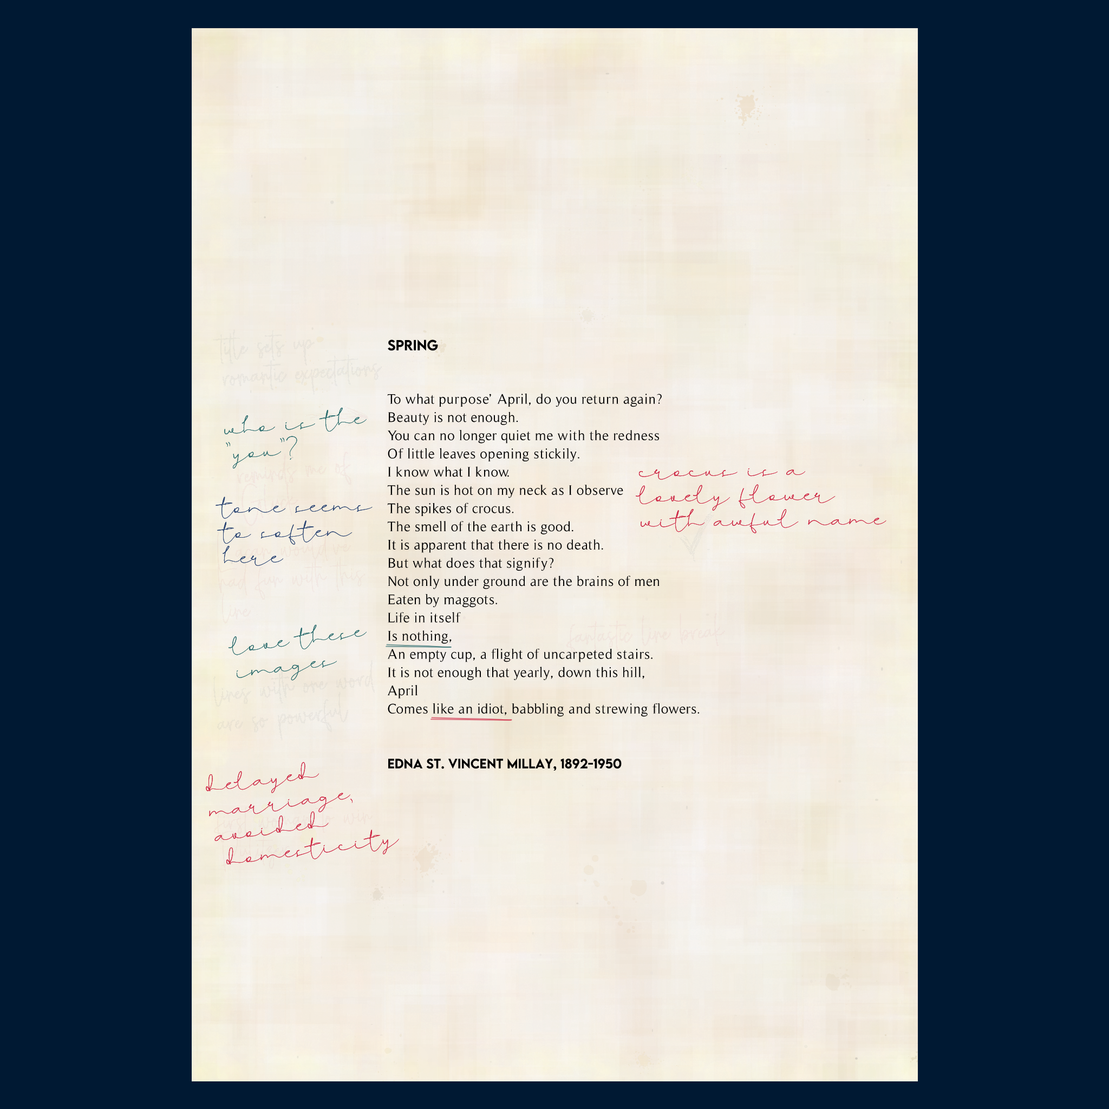 SPRING
title sets up
romantic expectations
To what purpose' April, do you return again?
Beauty is not enough.
You can no longer quiet me with the redness
Of little leaves opening stickily.
I know what I know.
The sun is hot on my neck as I observe
The spikes of crocus.
The smell of the earth is good.
It is apparent that there is no death.
But what does that signify?
Not only under ground are the brains of men
Eaten by maggots.
Life in itself
Is nothing,
An empty cup, a flight of uncarpeted stairs.
It is not enough that yearly, down this hill,
April
Comes like an idiot, babbling and strewing flowers.
EDNA ST. VINCENT MILLAY, 1892-1950
who is the
"you"?
reminds me of
tone seems
to soften
here
had fun with this
line
love these
images
lines with one word
are so powerful
delayed
marriage,
avoided
domesticity
crocus is a
lovely flower
with awful name
fantastic line break